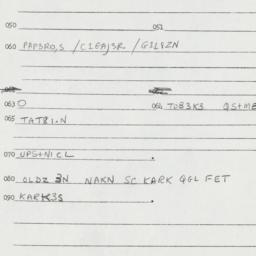 050 051
060 PAPSRO,S /C1EAJSR /GILSZN
063 O 064 TOB3K3 QS+MB
065 TAT8I.N
070 UPS+NICL .
080 OLDZ 3N NAKN SC KARK QGL FET
090 KARK3S .